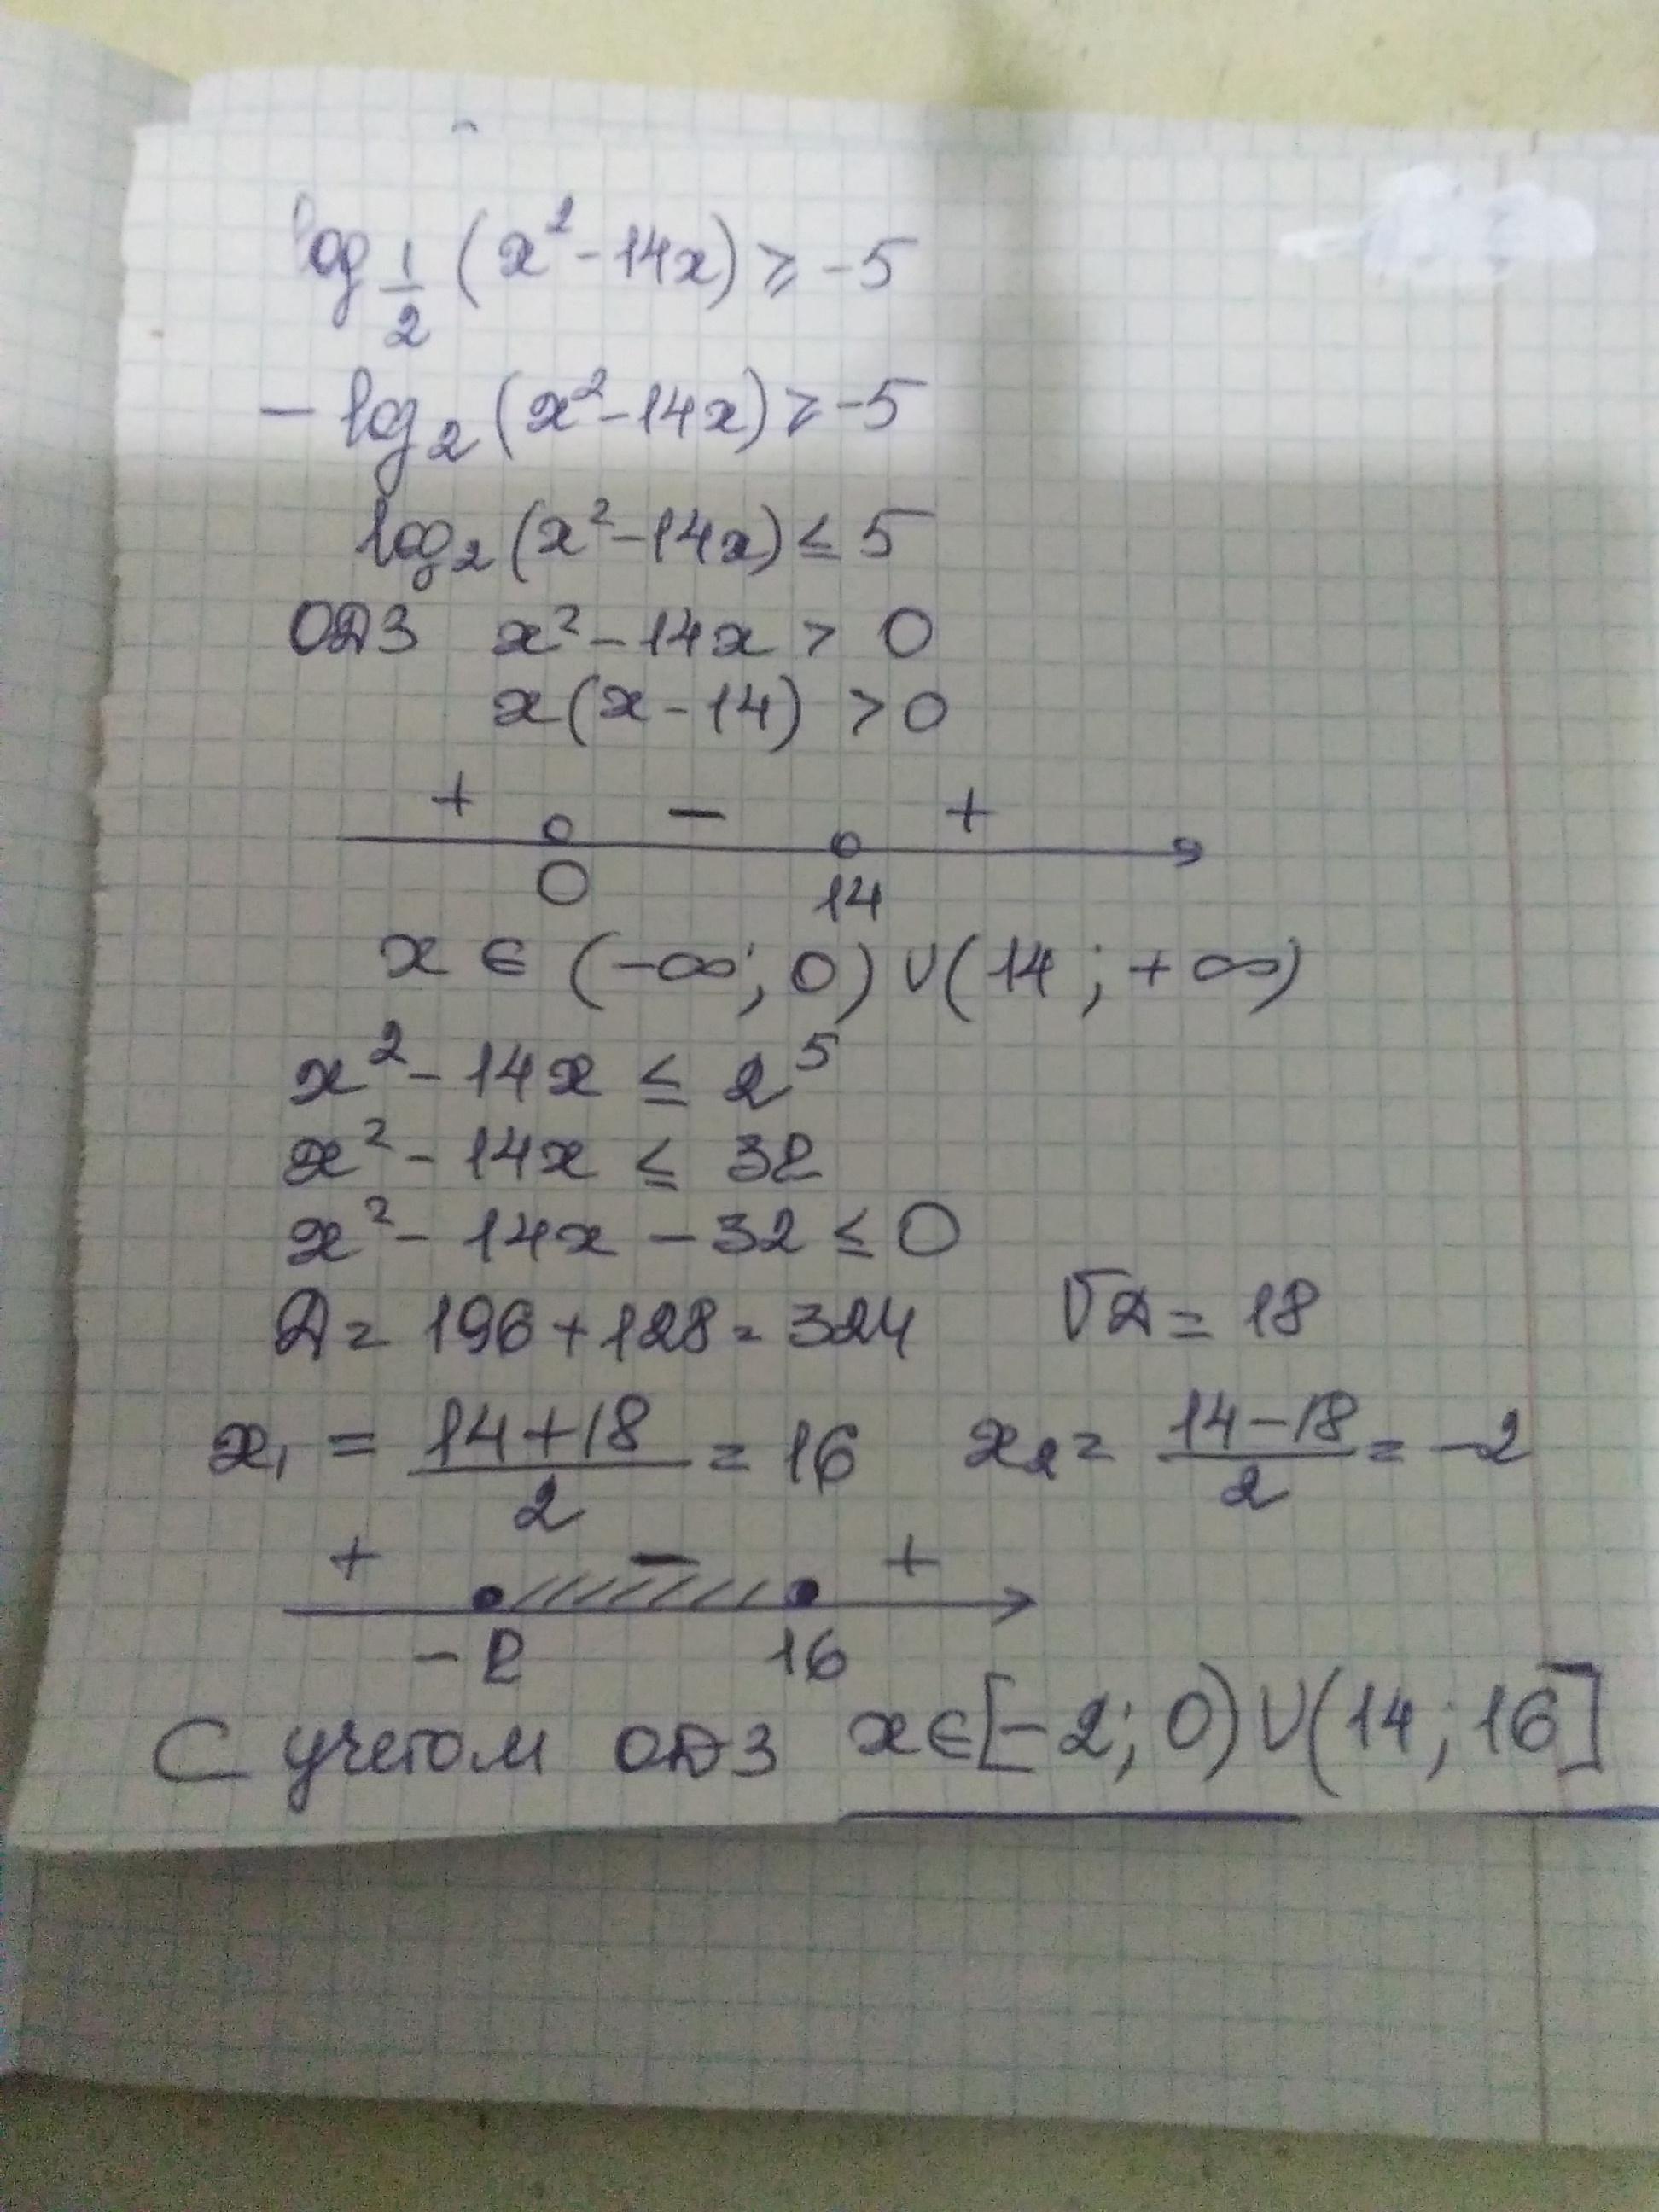 log 1/2 (x² - 14x) ≥ -5
- log₂ (x² - 14x) ≥ -5
log₂ (x² - 14x) ≤ 5
ОДЗ x² - 14x > 0
x(x - 14) > 0
+ - +
0 14
x ∈ (-∞; 0) ∪ (14; +∞)
x² - 14x ≤ 2⁵
x² - 14x ≤ 32
x² - 14x - 32 ≤ 0
D = 196 + 128 = 324 √D = 18
x₁ = (14+18)/2 = 16 x₂ = (14-18)/2 = -2
+ - +
-2 16
С учетом ОДЗ x ∈ [-2; 0) ∪ (14; 16]